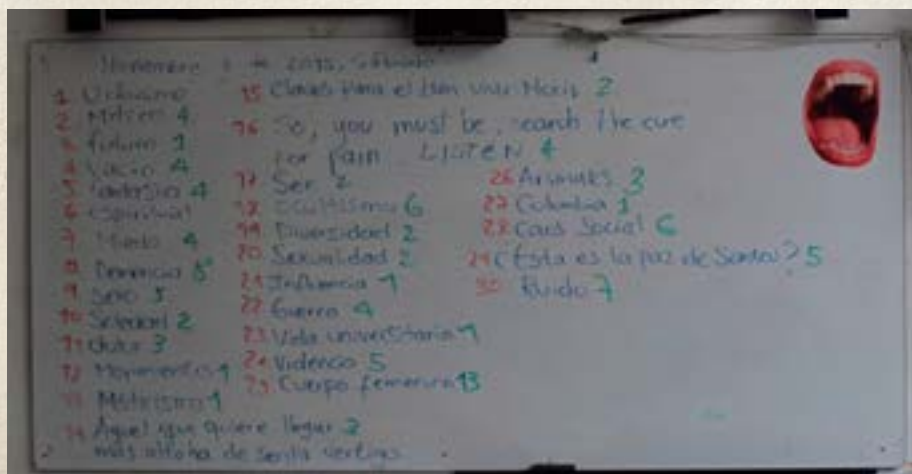 Noviembre 2015, Sábado
1 Urbanismo
2 4
3 futuro 1
4 Vacio 4
5 fantasia 4
6 espiritual
7 Miedo 4
8 Demencia 5
9 Sexo 5
10 Soledad 2
11 dolor 3
12 Movimientos 1
13 Misticismo 1
14 Aquel que quiere llegar 2
más alto ha de sentir vertigo
15 Claves para el bien vivir 2
16 So, you must be, search the cure
for pain LISTEN 4
17 Ser 2
18 Ocultismo 6
19 Diversidad 2
20 Sexualidad 2
21 Influencia 1
22 Guerra 4
23 Vida universitaria 1
24 Violencia 5
25 Cuerpo femenino 13
26 Animales 3
27 Colombia 1
28 Caos Social 6
29 ¿Esta es la paz de Santos? 5
30 Ruido 7